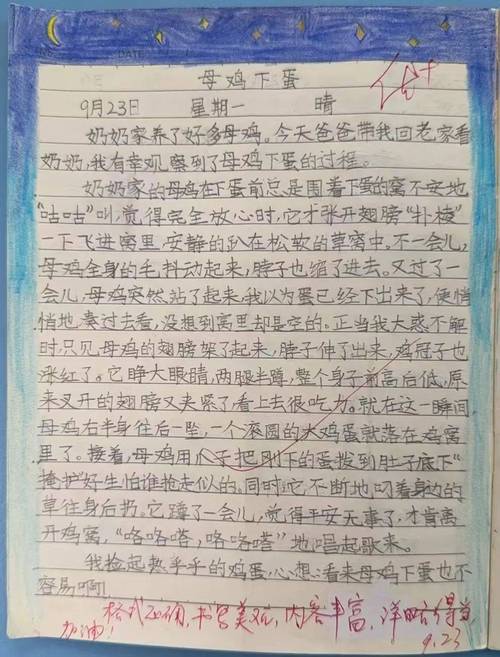 DATE
母鸡下蛋
9月23日 星期一 晴
奶奶家养了好多母鸡。今天爸爸带我回老家看
奶奶,我有幸观察到了母鸡下蛋的过程。
奶奶家的母鸡在下蛋前总是围着下蛋的窝不安地
“咕咕”叫,觉得完全放心时,它才张开翅膀“扑棱”
一下飞进窝里,安静的趴在松软的草窝中。不一会儿,
母鸡全身的毛,抖动起来,脖子也缩了进去。又过了一
会儿,母鸡突然站了起来,我以为蛋已经下出来了,便悄
悄地凑过去看,没想到窝里却是空的。正当我大惑不解
时,只见母鸡的翅膀架了起来,脖子伸了出来,鸡冠子也
涨红了。它睁大眼睛,两腿半蹲,整个身子前高后低,原
来叉开的翅膀又夹紧了看上去很吃力。就在这一瞬间
母鸡右半身往后一坠,一个滚圆的大鸡蛋就落在鸡窝
里了。接着,母鸡用爪子把刚下的蛋拨到肚子底下“
掩护好生怕谁抢走似的。同时它,不断地,叼着身边的
草往身后扔。它蹲了一会儿,觉得平安无事了,才肯离
开鸡窝,“咯咯嗒,咯咯嗒”地,唱起歌来。
我捡起热乎乎的鸡蛋,心想:看来母鸡下蛋也不
容易啊!
格式正确,书写美观,内容丰富,详略得当
加油! 9.23